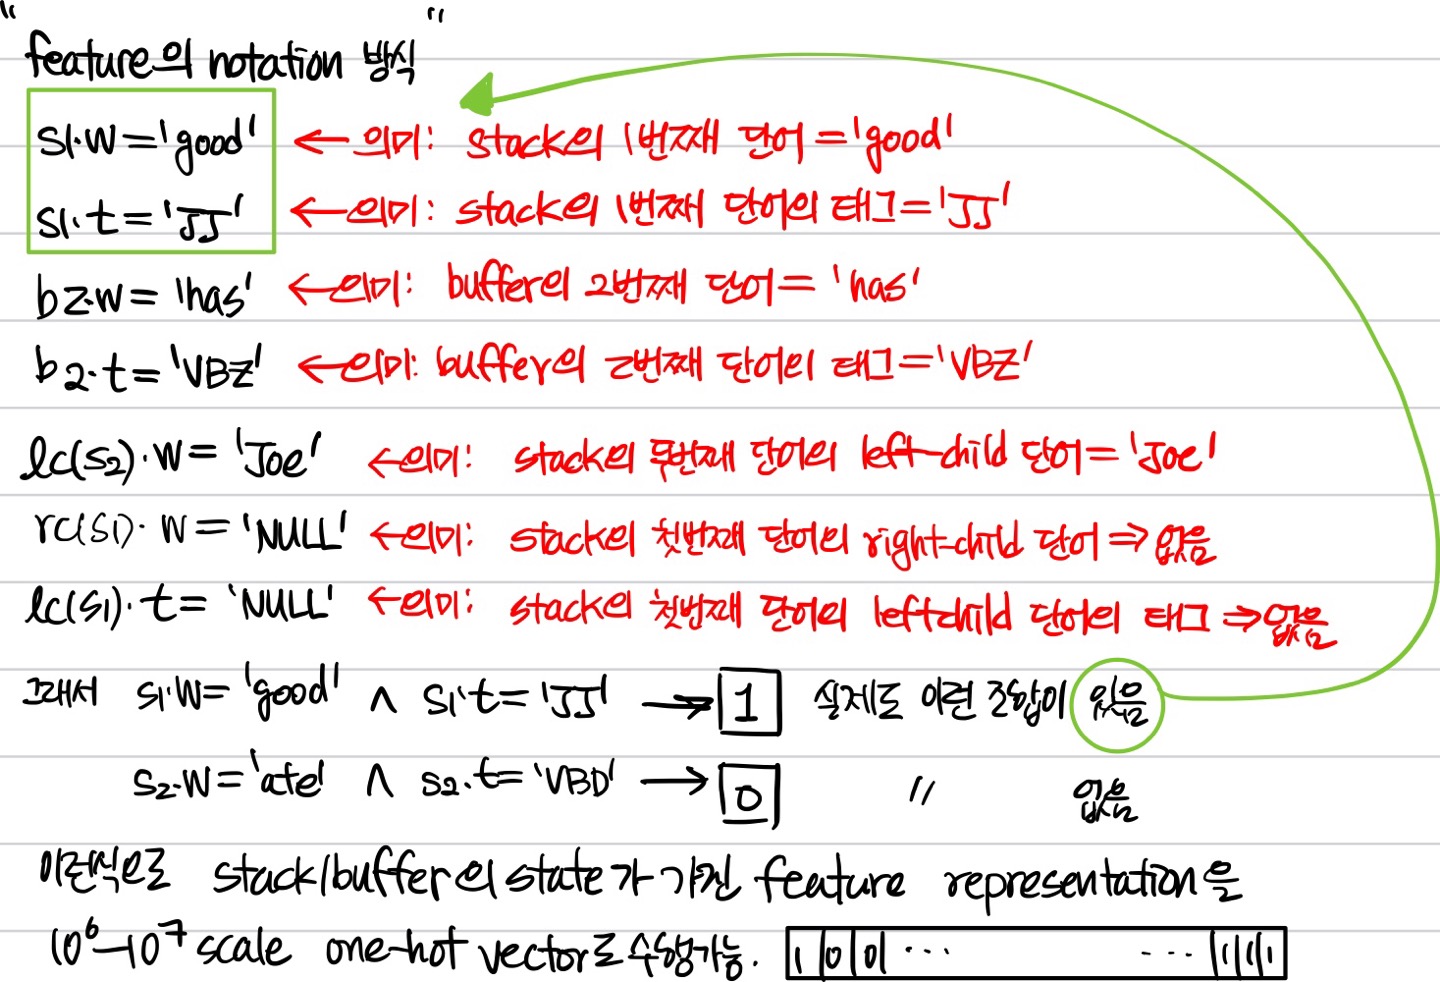 "feature의 notation 방식"
S1.W='good' ← 의미: stack의 1번째 단어='good'
S1.t='JJ' ← 의미: stack의 1번째 단어의 태그='JJ'
b2.W='has' ← 의미: buffer의 2번째 단어='has'
b2.t='VBZ' ← 의미: buffer의 2번째 단어의 태그='VBZ'
lc(S2).W='Joe' ← 의미: stack의 두번째 단어의 left-child 단어='Joe'
rc(S1).W='NULL' ← 의미: stack의 첫번째 단어의 right-child 단어 ⇒ 없음
lc(S1).t='NULL' ← 의미: stack의 첫번째 단어의 leftchild 단어의 태그 ⇒ 없음
그래서 S1.W='good' ∧ S1.t='JJ' → 1 실제로 이런 조합이 있음
S2.W='ate' ∧ S2.t='VBD' → 0 〃 없음
이런식으로 stack/buffer의 state가 가진 feature representation을
10⁶-10⁷ scale one-hot vector로 수행가능. 1|0|0| ··· ··· |1|1|1